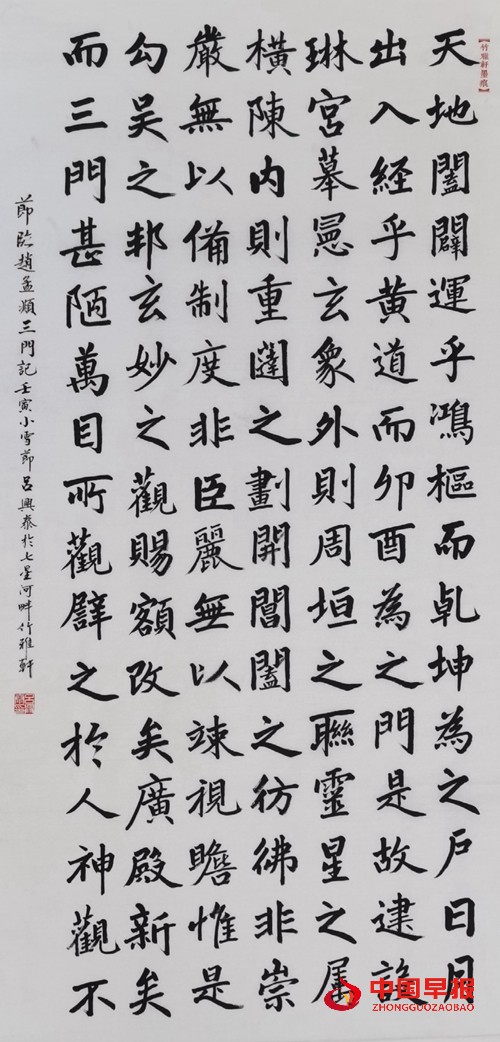 竹雅軒墨痕
天地闔闢運乎鴻樞而乹坤為之戶日月
出入經乎黄道而卯酉為之門是故建設
琳宮摹憲玄象外則周垣之聯靈星之属
橫陳内則重闈之劃開閶闔之彷彿非崇
嚴無以備制度非臣麗無以竦視瞻惟是
勾吴之邦玄妙之觀賜額改矣廣殿新矣
而三門甚陋萬目所觀譬之於人神觀不
節臨趙孟頫三門記壬寅小雪節吕興泰於七星河畔竹雅軒
中国早报
ZHONGGUOZAOBAO